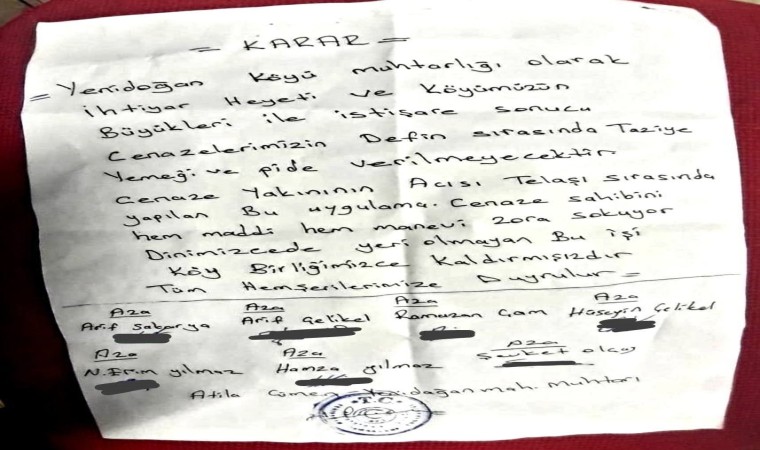 = KARAR =
= Yenidoğan Köyü muhtarlığı olarak
ihtiyar Heyeti ve Köyümüzün
Büyükleri ile istişare sonucu
Cenazelerimizin Defin sırasında Taziye
Yemeği ve pide verilmeyecektir
Cenaze Yakınının Acısı Telaşı sırasında
yapılan Bu uygulama. Cenaze sahibini
hem maddi hem manevi zora sokuyor
Dinimizcede yeri olmayan Bu işi
Köy Birliğimizce Kaldırmışızdır
Tüm Hemşerilerimize Duyrulur =
Aza Aza Aza Aza
Arif Sakarya Arif Çelikel Ramazan Çam Hüseyin Çelikel
Aza Aza Aza
N. Erim yılmaz Hamza yılmaz Şevket olçay
Atila Çimen Yenidoğan mah. Muhtarı
T.C.